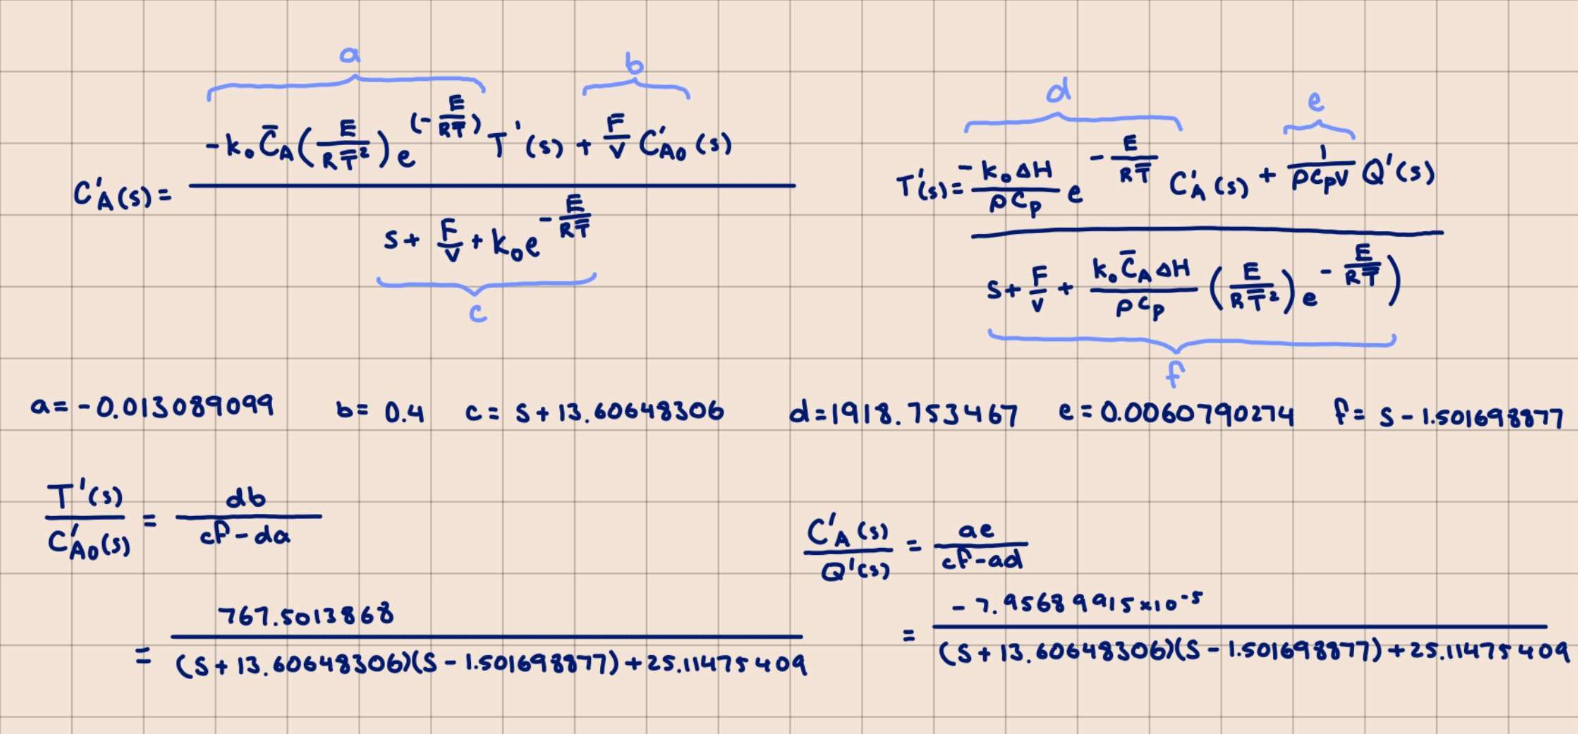 a
b
C'A(s) = (-k₀ C̄A (E/(R T̄²)) e^(-E/(R T̄)) T'(s) + F/V C'A₀(s)) / (s + F/V + k₀ e^(-E/(R T̄)))
c
d
e
T'(s) = (-k₀ ΔH/(ρ Cp) e^(-E/(R T̄)) C'A(s) + 1/(ρ Cp V) Q'(s)) / (s + F/V + k₀ C̄A ΔH/(ρ Cp) (E/(R T̄²)) e^(-E/(R T̄)))
f
a = -0.013089099 b = 0.4 c = s + 13.60648306 d = 1918.753467 e = 0.0060790274 f = s - 1.501698877
T'(s)/C'A₀(s) = db/(cf - da)
= 767.5013868 / ((s + 13.60648306)(s - 1.501698877) + 25.11475409)
C'A(s)/Q'(s) = ae/(cf - ad)
= -7.95689915 × 10⁻⁵ / ((s + 13.60648306)(s - 1.501698877) + 25.11475409)